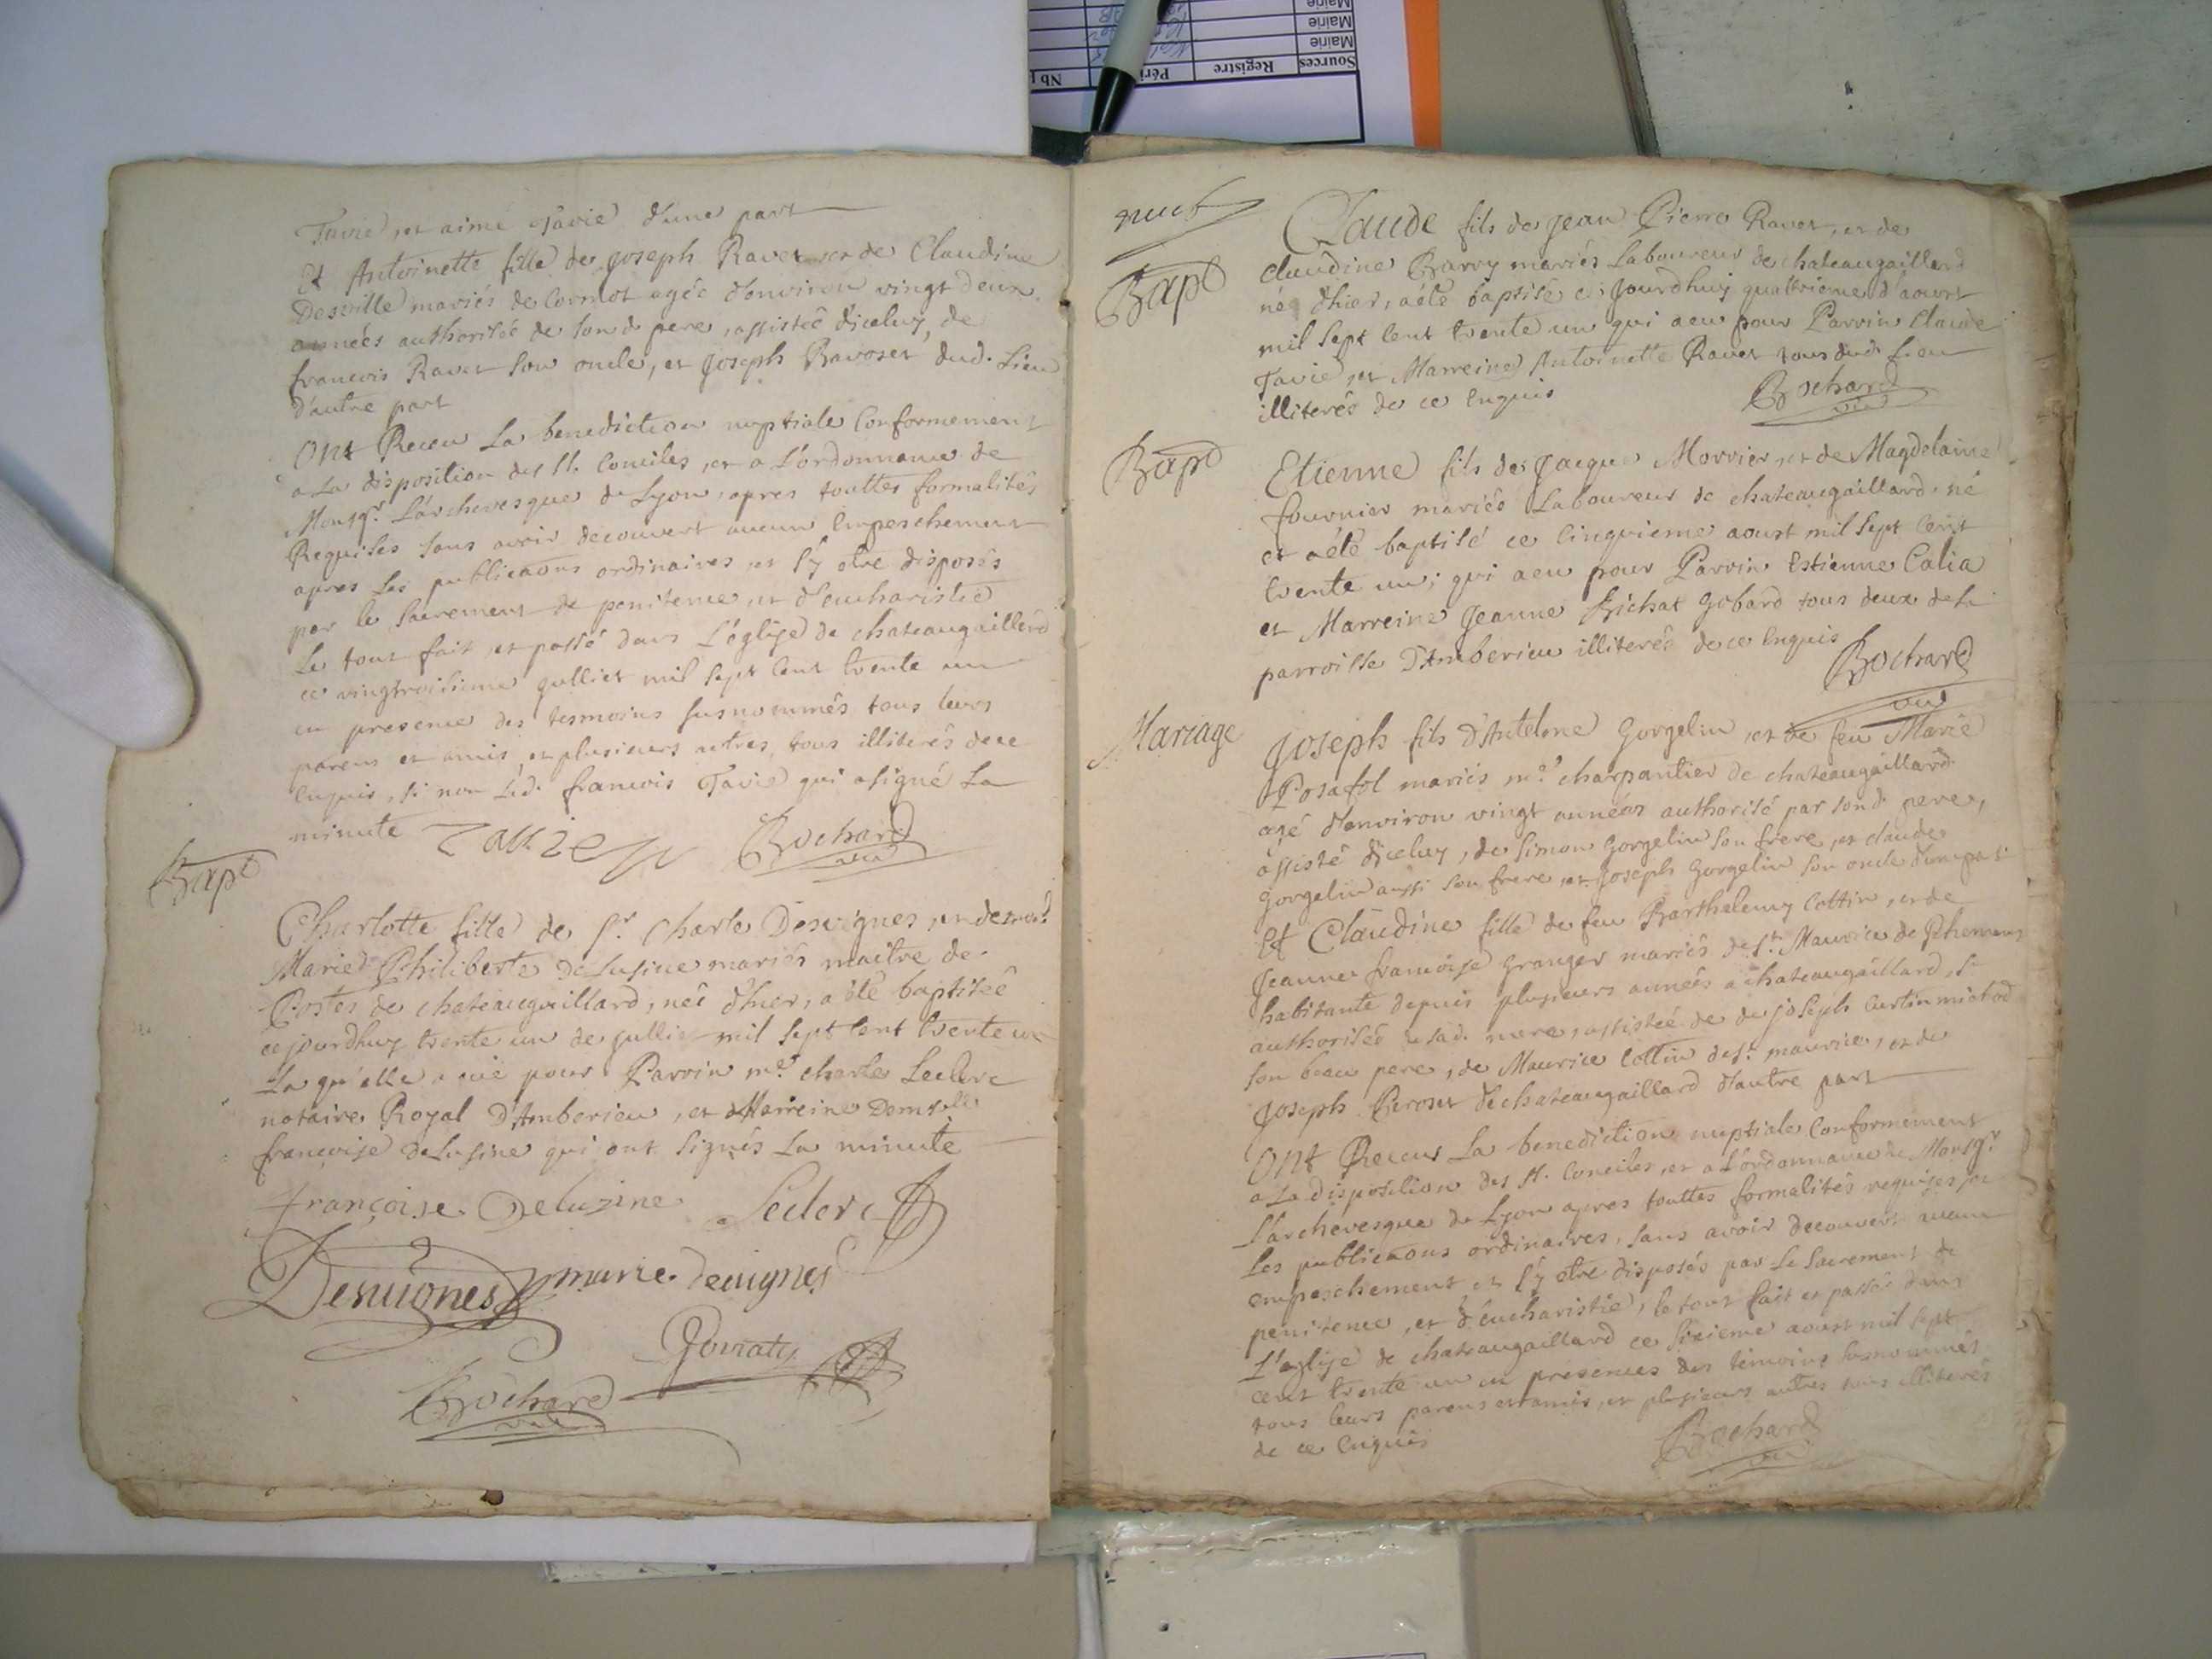 Tavié, et aimé Tavié d'une part
Et Antoinette fille de Joseph Ravet et de Claudine
Desville mariés de Cormot agée d'environ vingt deux
années authorisée de sond. pere, assistée diceluy, de
francois Ravet son oncle, et Joseph Ravoset dud. Lieu
d'autre part
Ont Receu La benediction nuptiale Conformement
a La disposition des SS. Conciles, et a L'ordonnance de
Monsgr. L'archevesque de Lyon, apres touttes formalités
Requises sans avoir decouvert aucun Empeschement
apres Les publicaons ordinaires, et s'y etre disposés
par le Sacrement de penitence, et d'eucharistie
Le tout fait, et passé dans L'église de chateaugaillard
ce vingtroisieme julliet mil sept cent trente un
en presence des tesmoins susnommés tous leurs
parens et amis, et plusieurs autres, tous illiterés de ce
Enquis, si non led. francois Tavié qui a signé La
minute Tavier Bochard
vic
Bapt
Charlotte fille de Sr. Charle Desvignes, et de
Marie Philiberte DeLusine mariés maitre de
Postes de chateaugaillard, née d'hier, a été baptisée
cejourdhuy trente un de jullie mil sept cent trente un
La qu'elle a eüe pour Parrin me. charles Leclerc
notaire Royal D'Amberieu, et Marreine Demselle
francoise deLusine qui ont Signés La minute
françoise Deluzine Leclerc
Desuignes marie deuignes
Gonraty
Bochard
vic
Bapt
Claude fils de Jean Pierre Ravet, et de
Claudine Barry mariés Laboureur de chateaugaillard
né d'hier, a été baptisé cejourdhuy quattrieme d'aoust
mil sept cent trente un qui a eu pour Parrin Claude
Tavié, et Marreine Antoinette Ravet tous dud. Lieu
illiterés de ce Enquis Bochard
vic
Bapt
Etienne fils de Jacque Morrier, et de Magdelaine
fournier mariés Laboureur de chateaugaillard, né
et a été baptisé ce Cinquieme aoust mil sept Cent
trente un; qui a eu pour Parrin Estienne Calia
et Marreine Jeanne Bichat Gobard tous deux de la
parroisse D'Amberieu illiterés de ce Enquis Bochard
vic
Mariage
Joseph fils D'Antelme Gorgelin, et de feu Marie
Posafol mariés me. charpantier de chateaugaillard
agé d'environ vingt années authorisé par sond. pere,
assisté diceluy, de Simon Gorgelin son frere, et claude
Gorgelin aussi son frere, et Joseph Gorgelin son oncle d'une part
Et Claudine fille de feu Barthelemy Cottin, et de
Jeanne francoise Granger mariés de St. Maurice de
habitante depuis plusieurs années a chateaugaillard,
authorisée de sad. mere, assistée de Joseph Curtin michod
son beau pere, de Maurice Cottin de St. maurice, et de
Joseph Perosset de chateaugaillard d'autre part
Ont Receus La benediction nuptiale Conformement
a La disposition des SS. Conciles, et a L'ordonnance de Monsgr.
L'archevesque de Lyon apres touttes formalités requises
Les publicaons ordinaires, sans avoir decouvert aucun
empeschement, et s'y etre disposés par Le Sacrement de
penitence, et d'eucharistie, le tout fait et passé dans
L'eglise de chateaugaillard ce Sixieme aoust mil sept
cent trente un en presences des temoins susnommés
tous leurs parens et amis, et plusieurs autres tous illiterés
de ce Enquis Bochard
vic
Sources Registre Péri Nb
Mairie
Mairie
Mairie